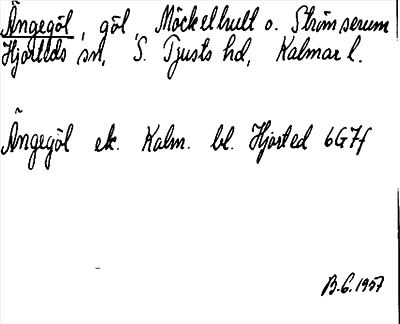 Ängegöl, göl, Möckelhult o. Strömserum
Hjorteds sn, S. Tjusts hd, Kalmar l.
Ängegöl ek. Kalm. bl. Hjorted 6G7f
B.G. 1957